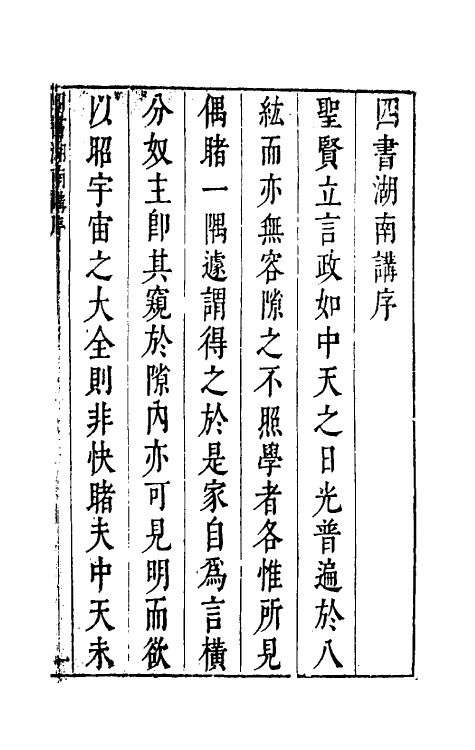 四書湖南講序
聖賢立言政如中天之日光普遍於八
紘而亦無容隙之不照學者各惟所見
偶睹一隅遽謂得之於是家自爲言橫
分奴主卽其窺於隙內亦可見明而欲
以昭宇宙之大全則非快睹夫中天未
四書湖南講序